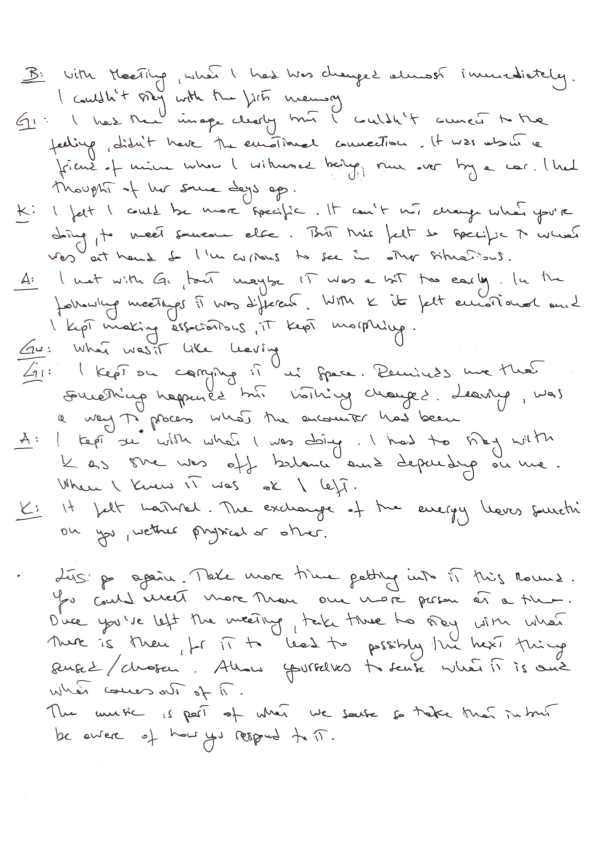 B: With Meeting, what I had was changed almost immediately.
I couldn't stay with the first memory
G1: I had the image clearly but I couldn't connect to the
feeling, didn't have the emotional connection. It was about a
friend of mine whom I witnessed being run over by a car. I had
thought of her some days ago.
K: I felt I could be more specific. It can't not change what you're
doing, to meet someone else. But this felt so specific to what
was at hand so I'm curious to see in other situations.
A: I met with G1, but maybe it was a bit too early. In the
following meetings it was different. With K it felt emotional and
I kept making associations, it kept morphing.
Gu: What was it like leaving
G1: I kept on carrying it in space. Reminds me that
something happened but nothing changed. Leaving, was
a way to process what the encounter had been
A: I kept on with what I was doing. I had to stay with
K as she was off balance and depending on me.
When I knew it was ok I left.
K: It felt natural. The exchange of the energy leaves somethi
on you, wether physical or other.
. Let's go again. Take more time getting into it this round.
You could meet more than one more person at a time.
Once you've left the meeting, take time to stay with what
there is then, for it to lead to possibly the next thing
sensed/chosen. Allow yourselves to sense what it is and
what comes out of it.
The music is part of what we sense so take that in but
be aware of how you respond to it.